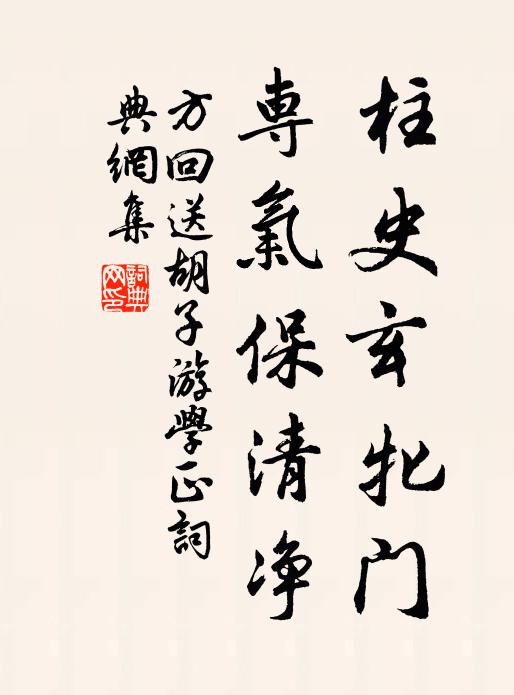 柱史玄牝门
専氣保清净
方回送胡子游學正詞
典網集
詞典网印